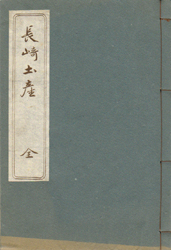 長崎土産 全